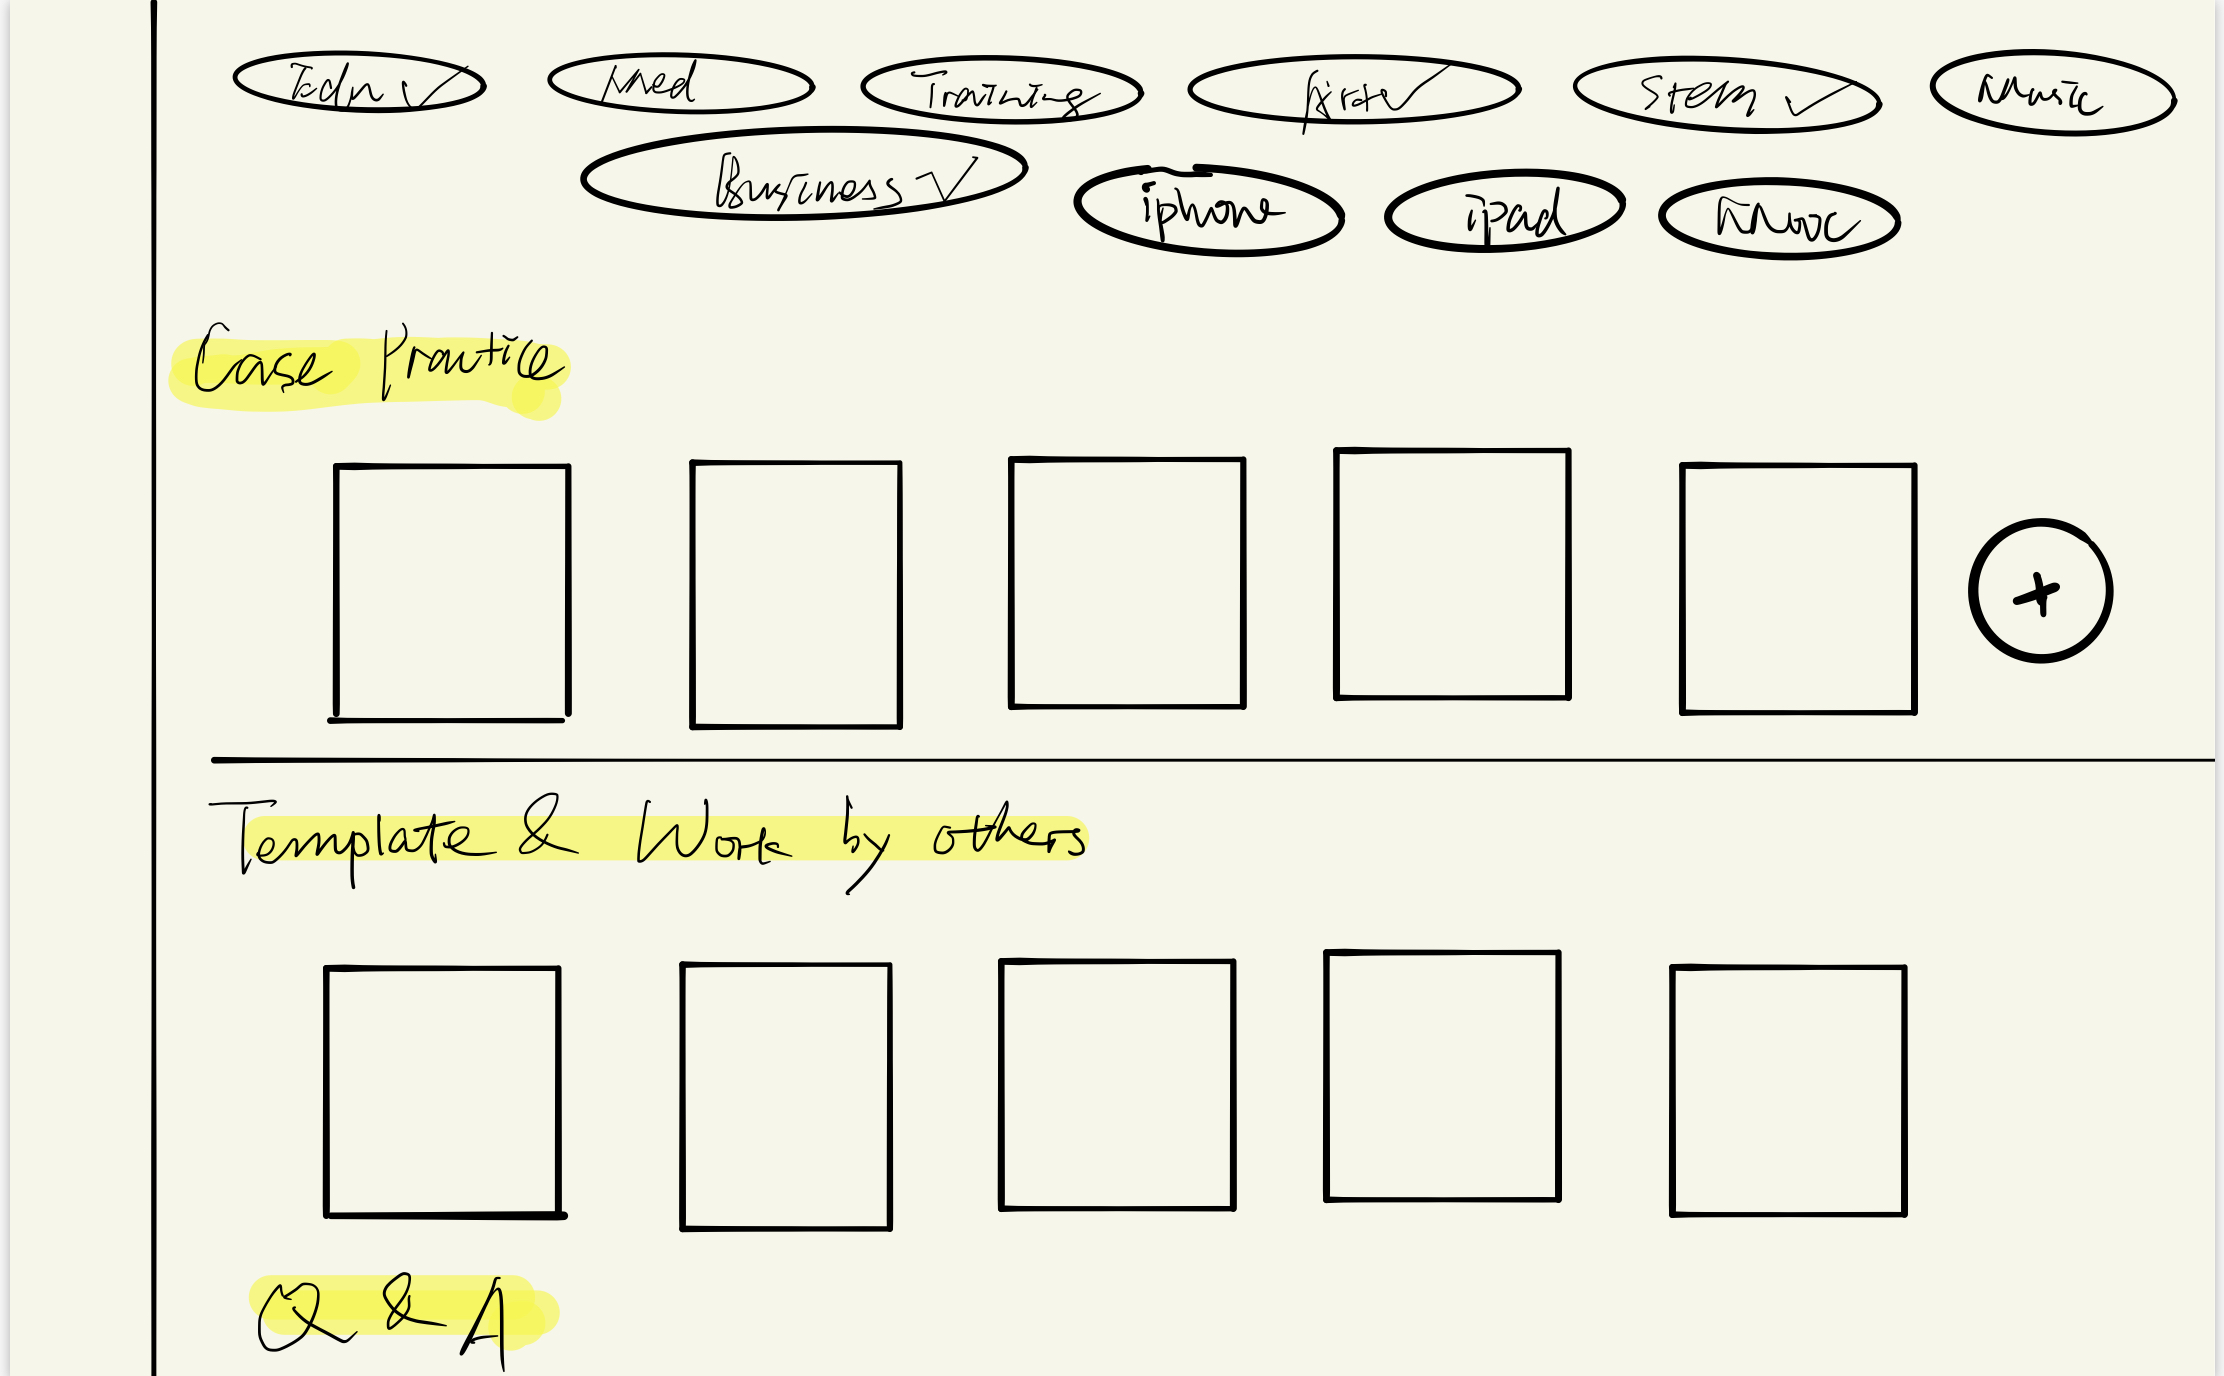 Edu ✓ Med Training Stem ✓ Music
Business ✓ iphone ipad
Case Practice
+
Template & Work by others
Q & A